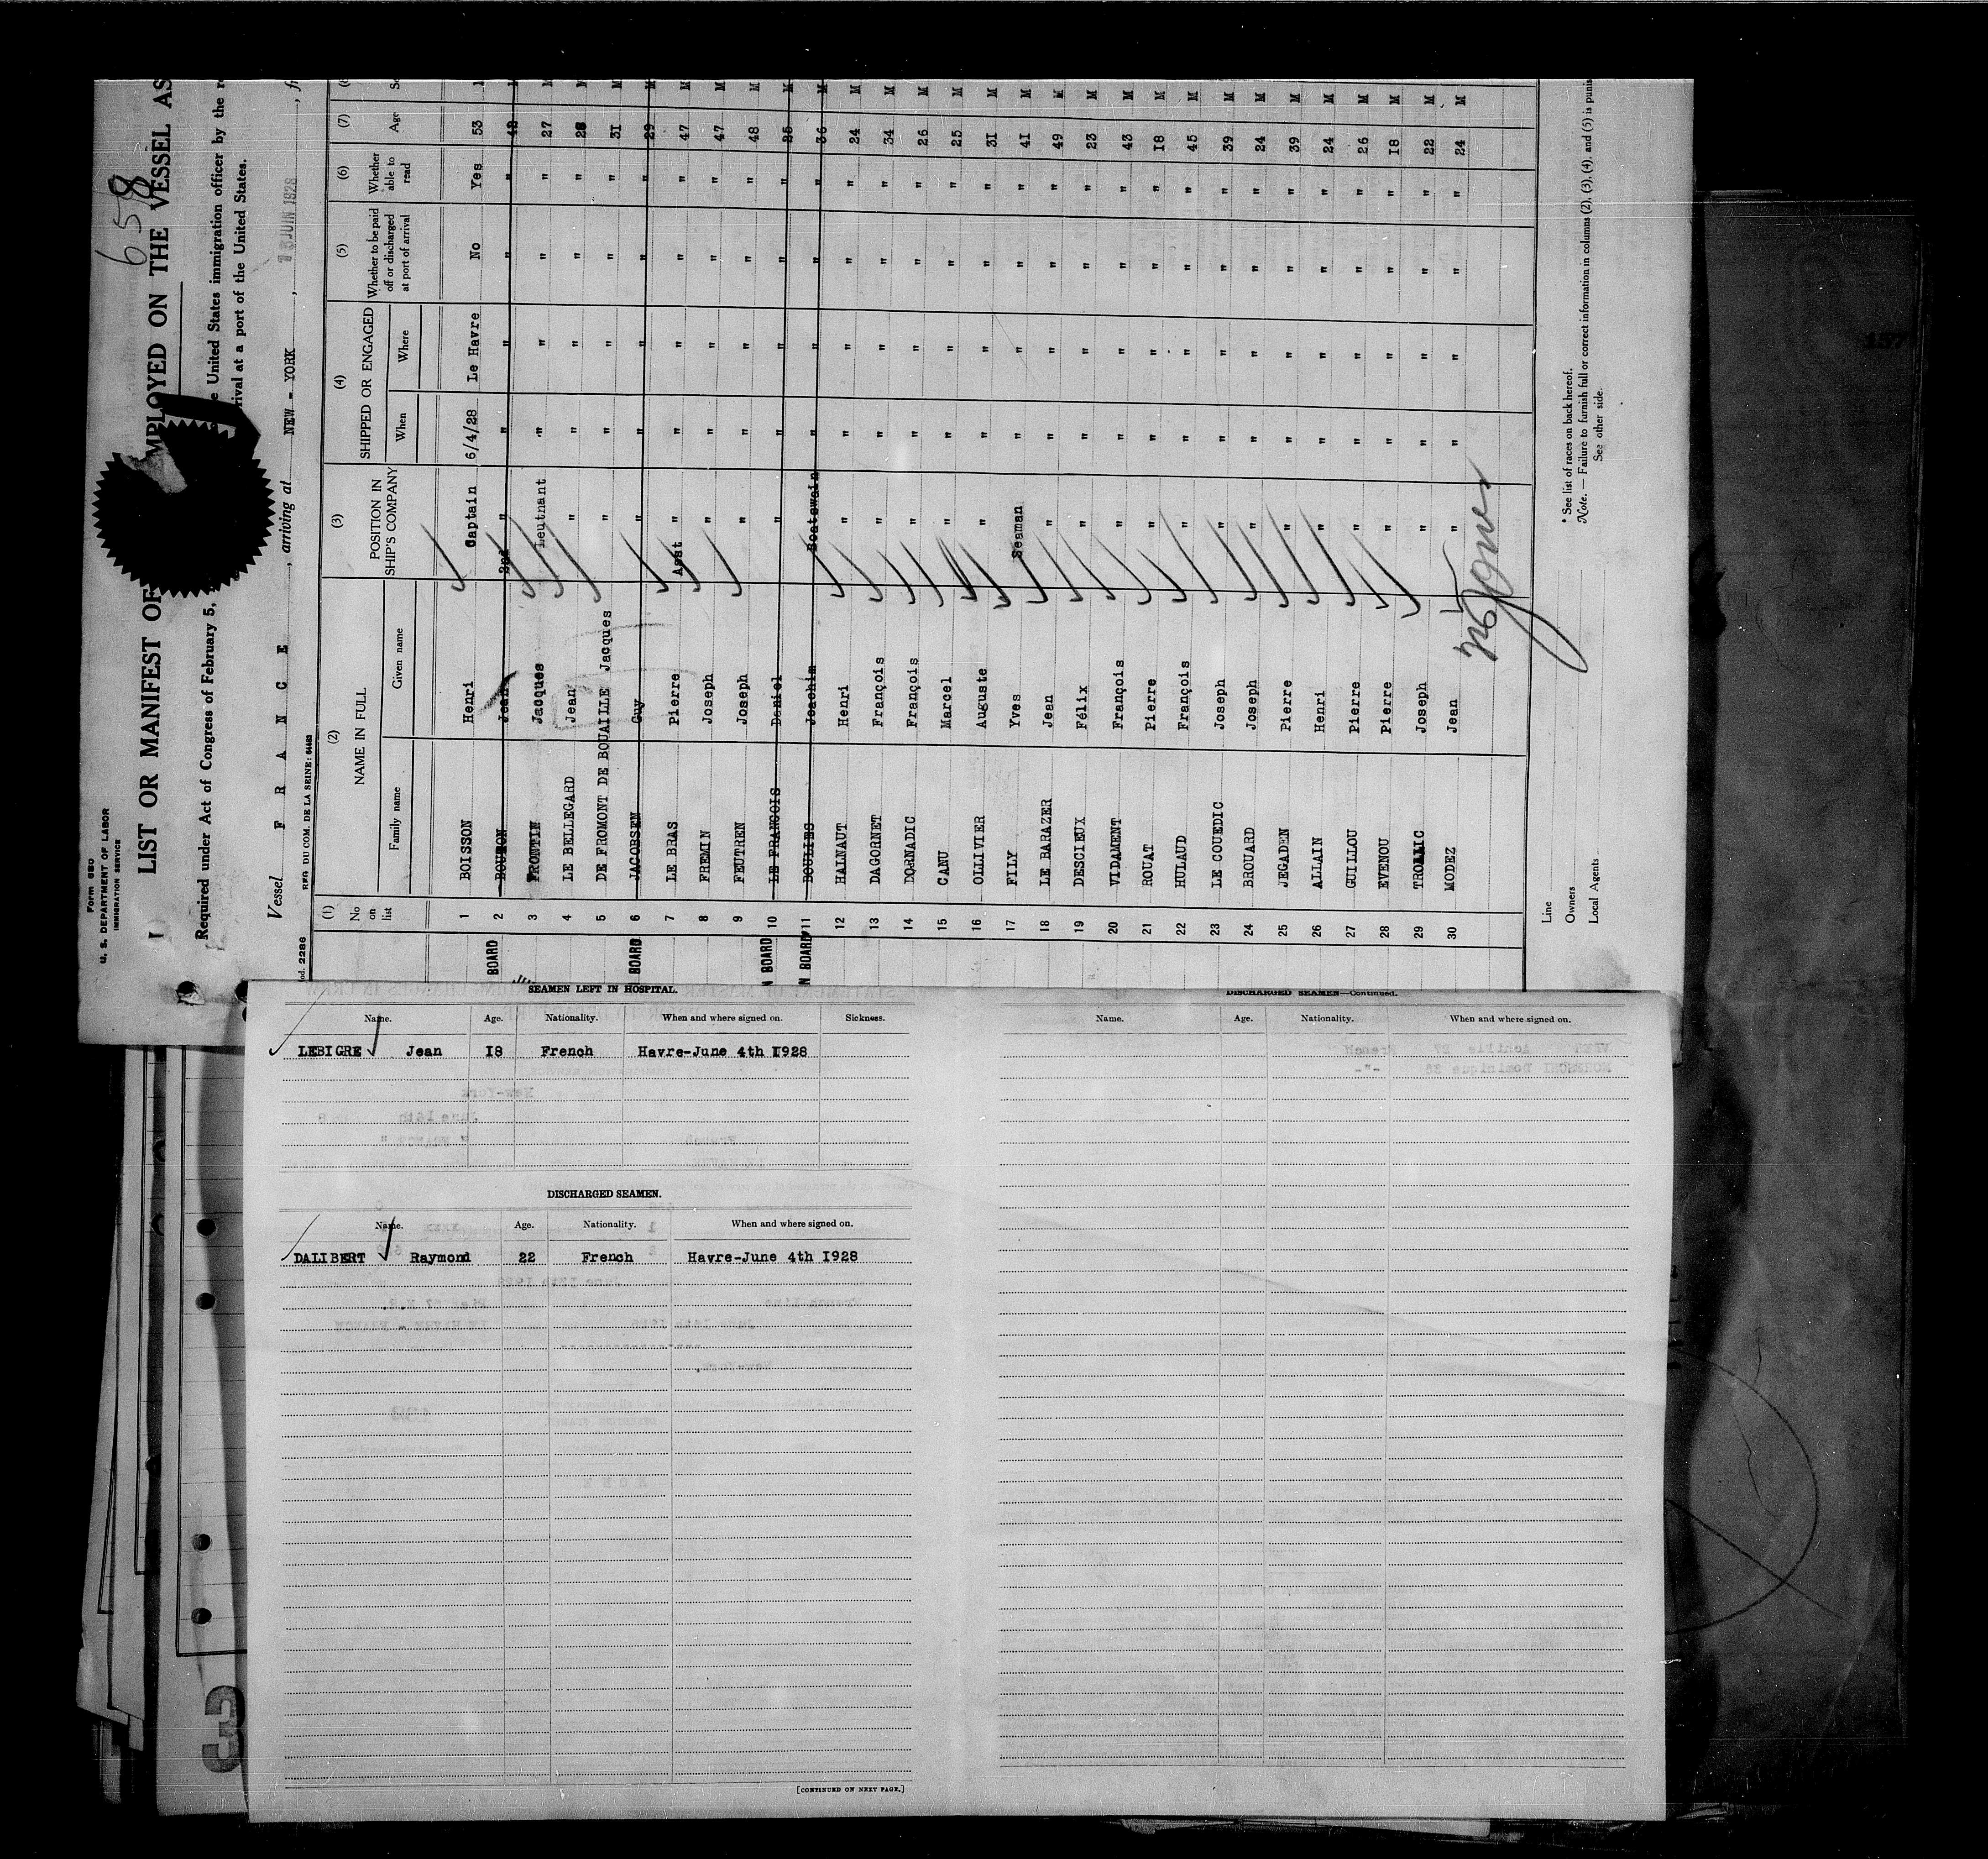 Form 680
U. S. DEPARTMENT OF LABOR
IMMIGRATION SERVICE
658
LIST OR MANIFEST OF MPLOYED ON THE VESSEL AS
Required under Act of Congress of February 5, United States immigration officer by the
rival at a port of the United States.
Vessel FRANCE , arriving at NEW - YORK , 13 JUIN 1928 , fr
REG DU COM. DE LA SEINE: 84483
2286
(1) (2) (3) (4) (5) (6) (7)
No on list NAME IN FULL POSITION IN SHIP'S COMPANY SHIPPED OR ENGAGED Whether to be paid off or discharged at port of arrival Whether able to read Age
Family name Given name When Where
1 BOISSON Henri Captain 6/4/28 Le Havre No Yes 53
BOARD 2 BOUTON Jean 2nd " " " " " 42
3 FRONTIN Jacques Leutnant " " " " 27 M
4 LE BELLEGARD Jean " " " " " 28 M
5 DE FROMONT DE BOUAILLE Jacques " " " " " 31 M
BOARD 6 JACOBSEN Guy " " " " " 29 M
7 LE BRAS Pierre Asst " " " " " 47 M
8 FREMIN Joseph " " " " " 47 M
9 FEUTREN Joseph " " " " " 48 M
N BOARD 10 LE FRANCOIS Daniel " " " " " 25 M
N BOARD 11 BOULIES Joachim Boatswain " " " " 36 M
12 HALNAUT Henri " " " " " 24 M
13 DAGORNET François " " " " " 34 M
14 DORNADIC François " " " " " 26 M
15 CANU Marcel " " " " " 25 M
16 OLLIVIER Auguste " " " " " 31 M
17 FILY Yves Seaman " " " " 41 M
18 LE BARAZER Jean " " " " " 49 M
19 DESCIEUX Félix " " " " " 23 M
20 VIDAMENT François " " " " " 43 M
21 ROUAT Pierre " " " " " 18 M
22 HULAUD François " " " " " 45 M
23 LE COUEDIC Joseph " " " " " 39 M
24 BROUARD Joseph " " " " " 24 M
25 JEGADEN Pierre " " " " " 39 M
26 ALLAIN Henri " " " " " 24 M
27 GUILLOU Pierre " " " " " 26 M
28 EVENOU Pierre " " " " " 18 M
29 Joseph " " " " " 22 M
30 MODEZ Jean " " " " " 24 M
Line
Owners
Local Agents
* See list of races on back hereof.
Note. — Failure to furnish full or correct information in columns (2), (3), (4), and (5) is punis
See other side.
157
SEAMEN LEFT IN HOSPITAL.
Name. Age. Nationality. When and where signed on. Sickness.
LEBIGRE Jean 18 French Havre-June 4th 1928
DISCHARGED SEAMEN.
Name. Age. Nationality. When and where signed on.
DALIBERT Raymond 22 French Havre-June 4th 1928
[CONTINUED ON NEXT PAGE.]
DISCHARGED SEAMEN—Continued.
Name. Age. Nationality. When and where signed on.
3